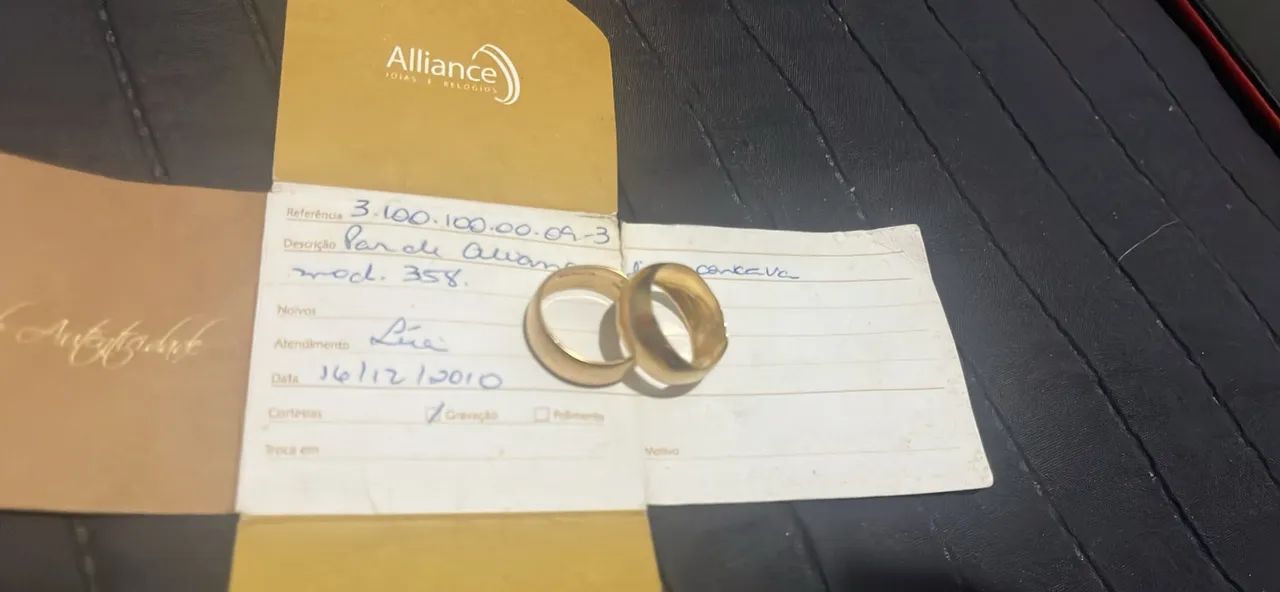 Alliance
JOIAS E RELÓGIOS
Referência 3.100.100.00.09-3
Descrição Par de côncava
mod. 358.
Noivos
Atendimento
Autenticidade
Data 16/12/2010
Cortesias Gravação Polimento
Troca em
Motivo